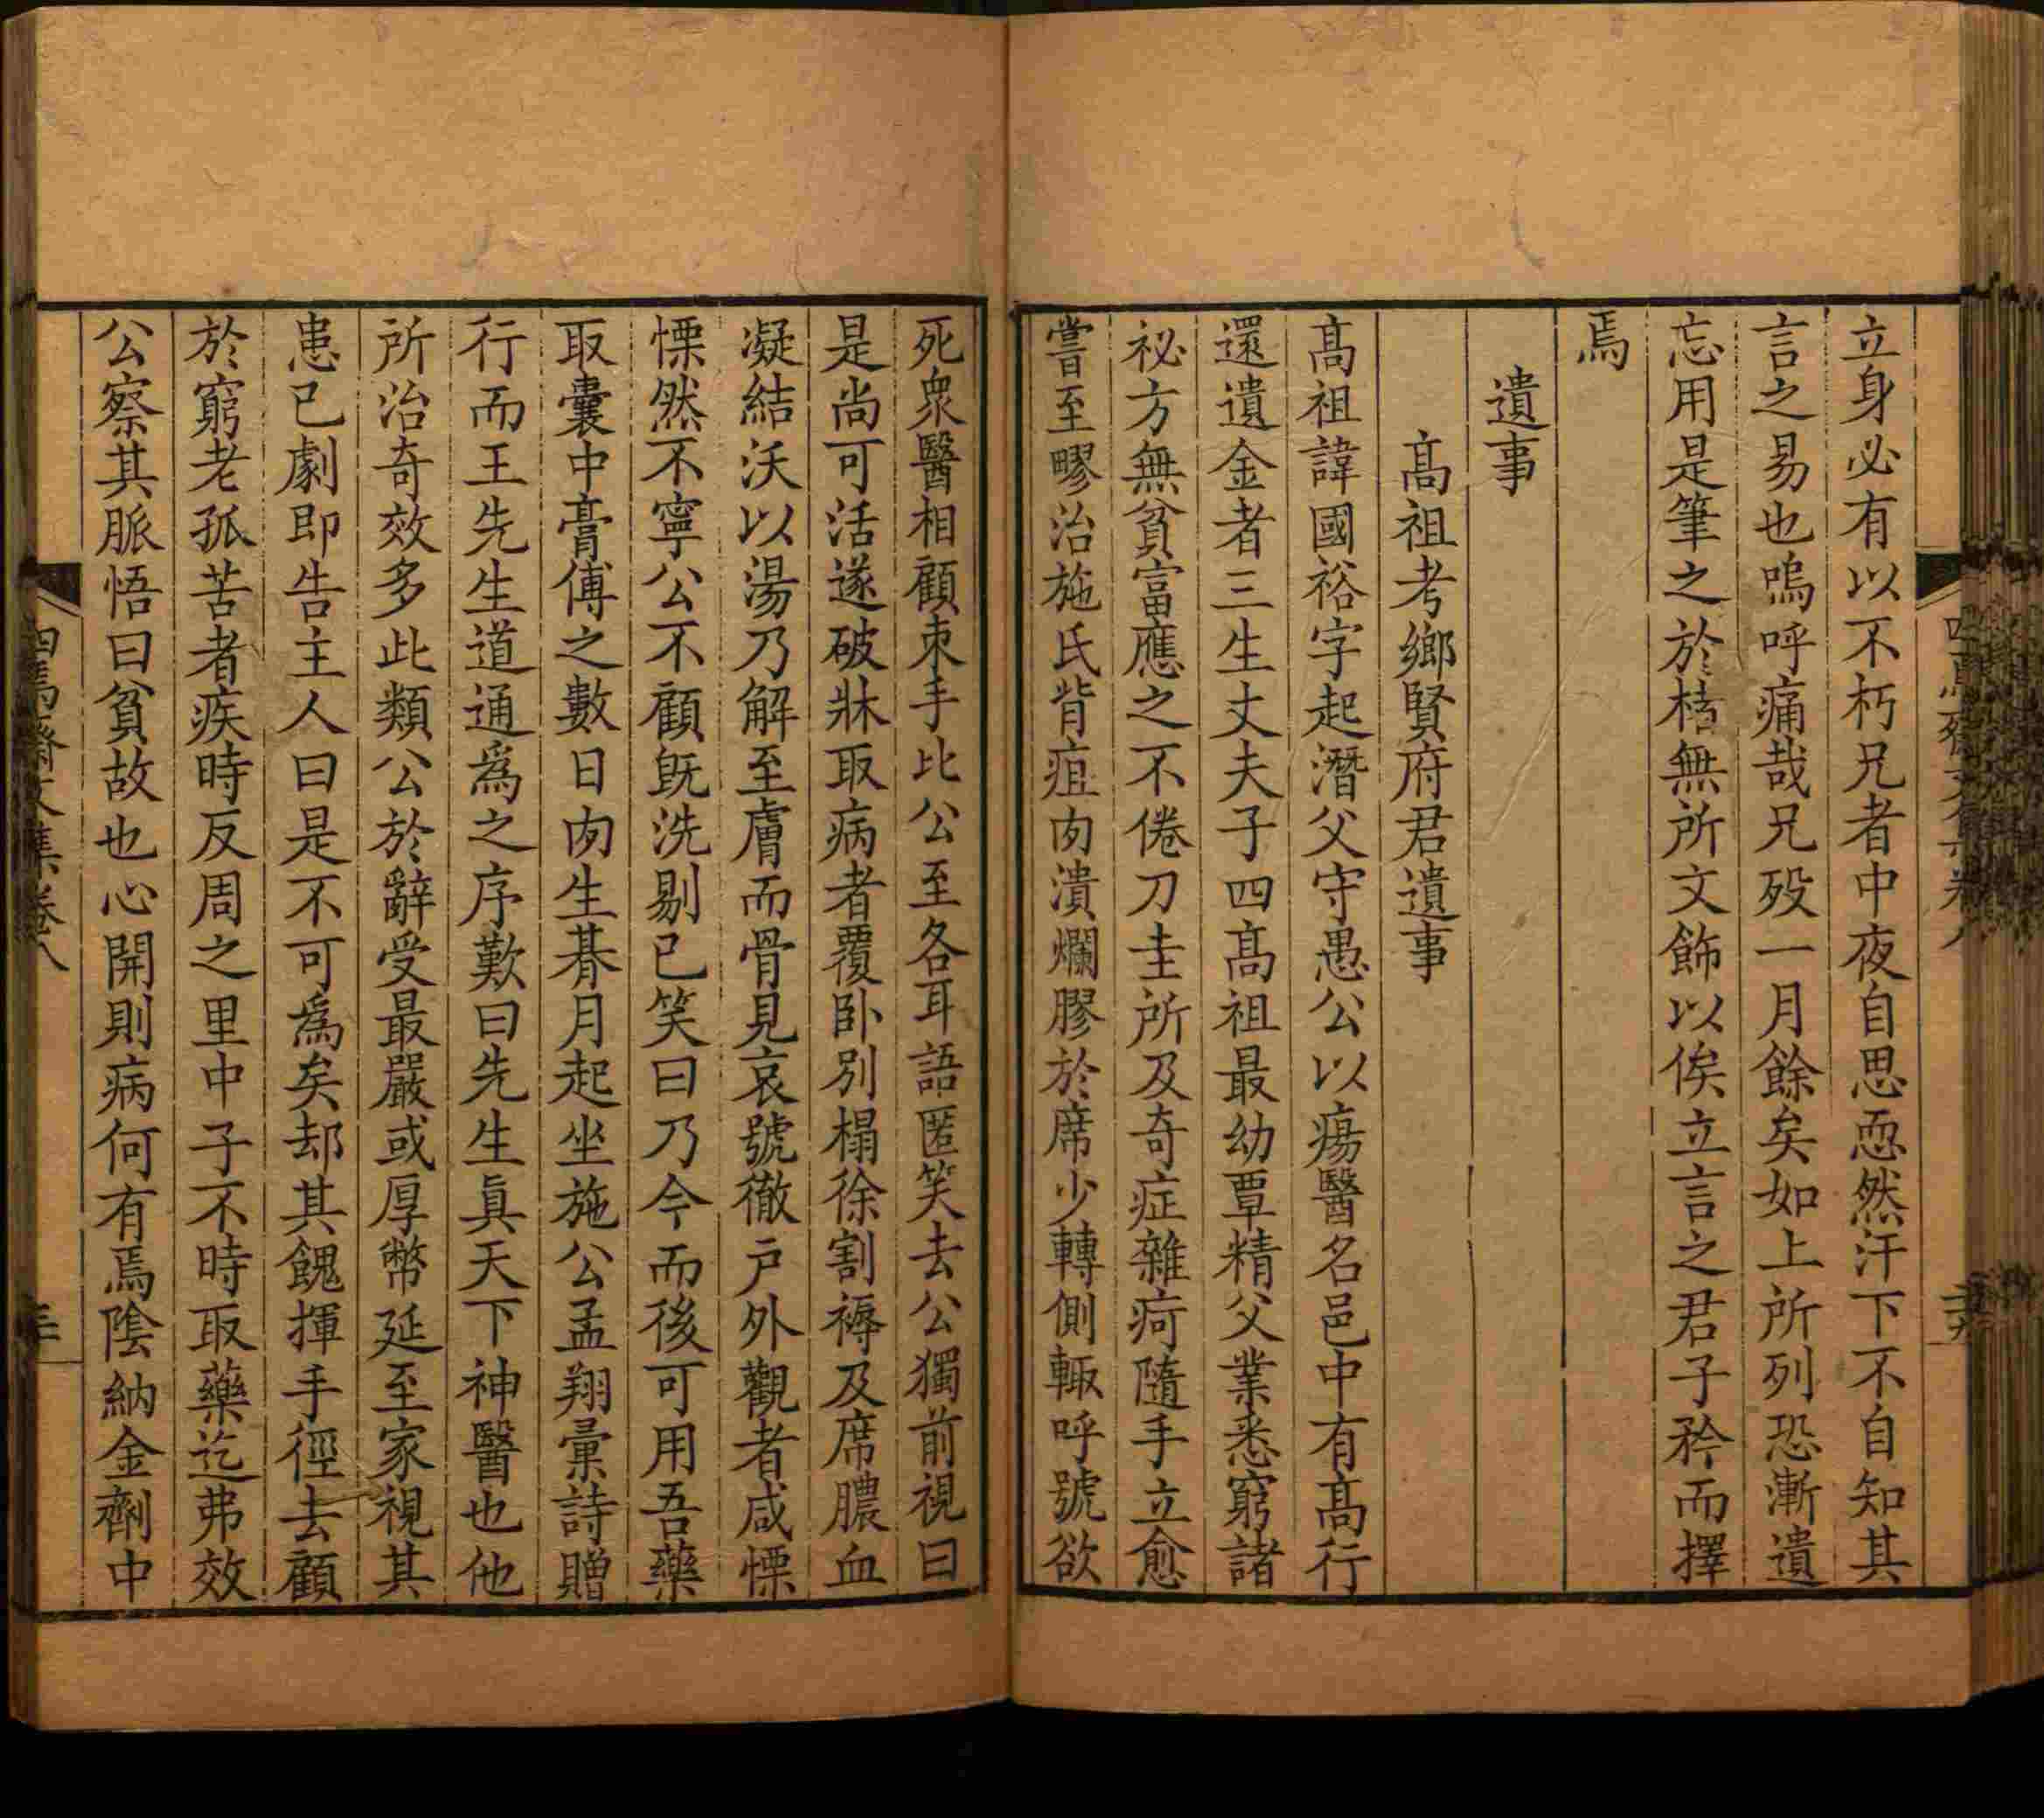 立身必有以不朽兄者中夜自思恧然汗下不自知其
言之易也嗚呼痛哉兄歿一月餘矣如上所列恐漸遺
忘用是筆之於楮無所文飾以俟立言之君子矜而擇
焉
遺事
高祖考鄉賢府君遺事
高祖諱國裕字起潛父守愚公以瘍醫名邑中有高行
還遺金者三生丈夫子四高祖最幼覃精父業悉窮諸
祕方無貧富應之不倦刀圭所及奇症雜疴隨手立愈
嘗至疁治施氏背疽肉潰爛膠於席少轉側輒呼號欲
死衆醫相顧束手比公至各耳語匿笑去公獨前視曰
是尚可活遂破牀取病者覆卧別榻徐割褥及席膿血
凝結沃以湯乃解至膚而骨見哀號徹戶外觀者咸慄
慄然不寧公不顧旣洗剔已笑曰乃今而後可用吾藥
取囊中膏傅之數日肉生朞月起坐施公孟翔彙詩贈
行而王先生道通爲之序歎曰先生眞天下神醫也他
所治奇效多此類公於辭受最嚴或厚幣延至家視其
患已劇即告主人曰是不可爲矣却其餽揮手徑去顧
於窮老孤苦者疾時反周之里中子不時取藥迄弗效
公察其脈悟曰貧故也心開則病何有焉陰納金劑中
四焉齋文集卷八